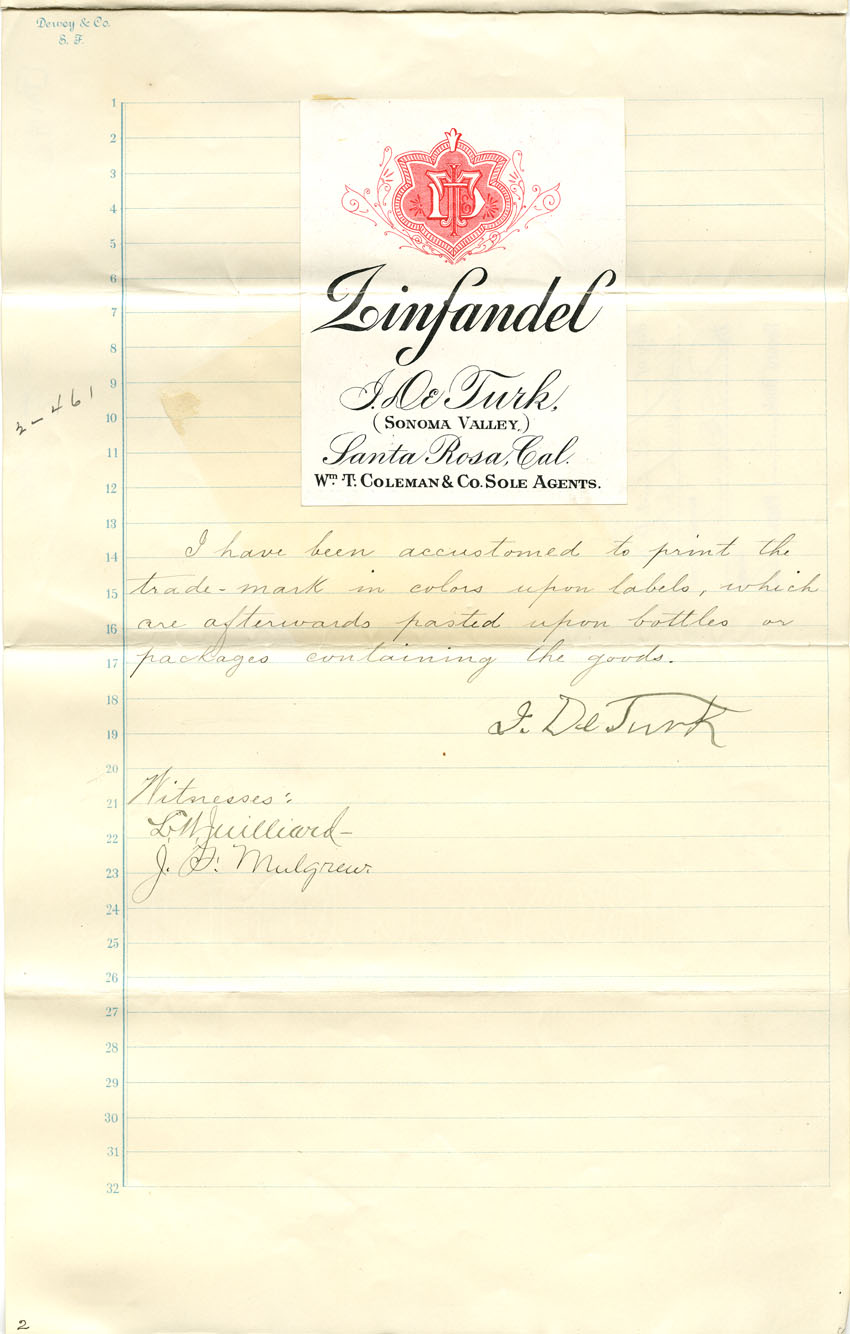 Dewey & Co.
S. F.
1
2
3
4
5
6
7
8
9
10
11
12
13
14
15
16
17
18
19
20
21
22
23
24
25
26
27
28
29
30
31
32
2-461
Zinfandel
I. De Turk,
(SONOMA VALLEY.)
Santa Rosa, Cal.
Wm. T. COLEMAN & CO. SOLE AGENTS.
I have been accustomed to print the
trade-mark in colors upon labels, which
are afterwards pasted upon bottles or
packages containing the goods.
I. De Turk
Witnesses:
L. W. Juilliard
J. F. Mulgrew.
2